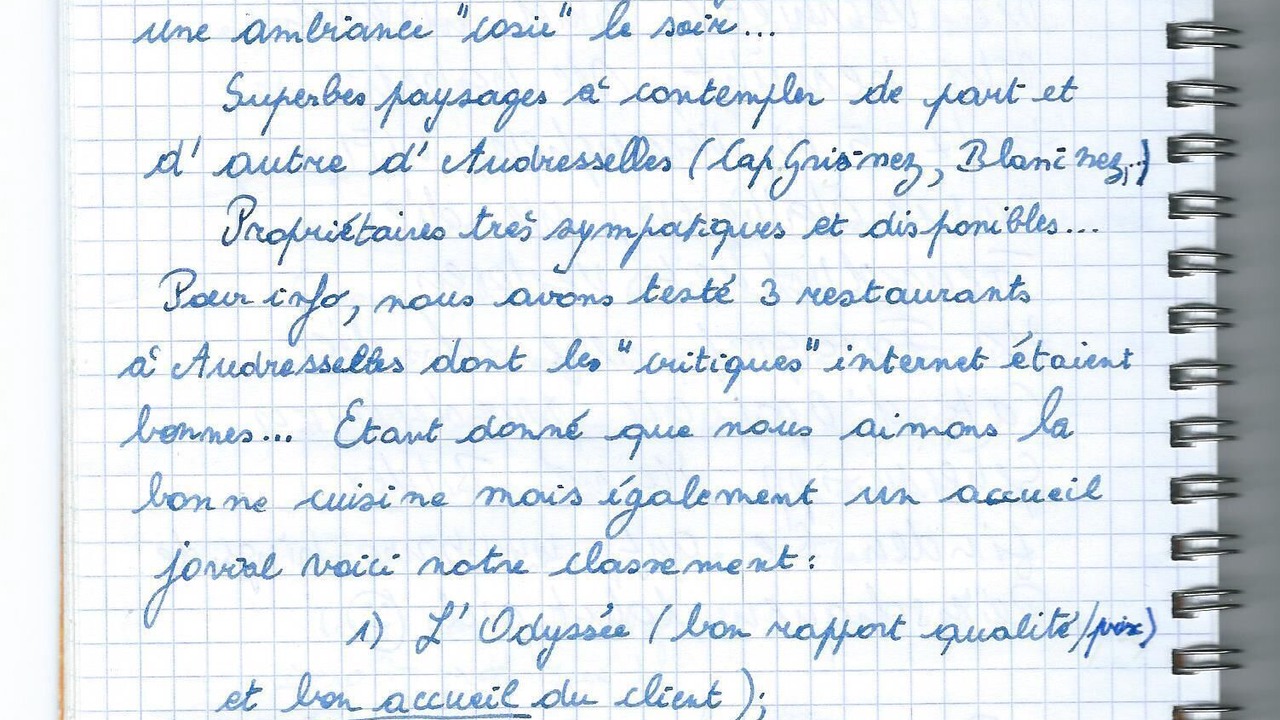 une ambiance "cosie" le soir...
Superbes paysages à contempler de part et
d'autre d'Audresselles (Cap Gris-nez, Blanc nez,..)
Propriétaires très sympatiques et disponibles...
Pour info, nous avons testé 3 restaurants
à Audresselles dont les "critiques" internet étaient
bonnes... Etant donné que nous aimons la
bonne cuisine mais également un accueil
jovial voici notre classement :
1) L'Odyssée (bon rapport qualité/prix)
et bon accueil du client);